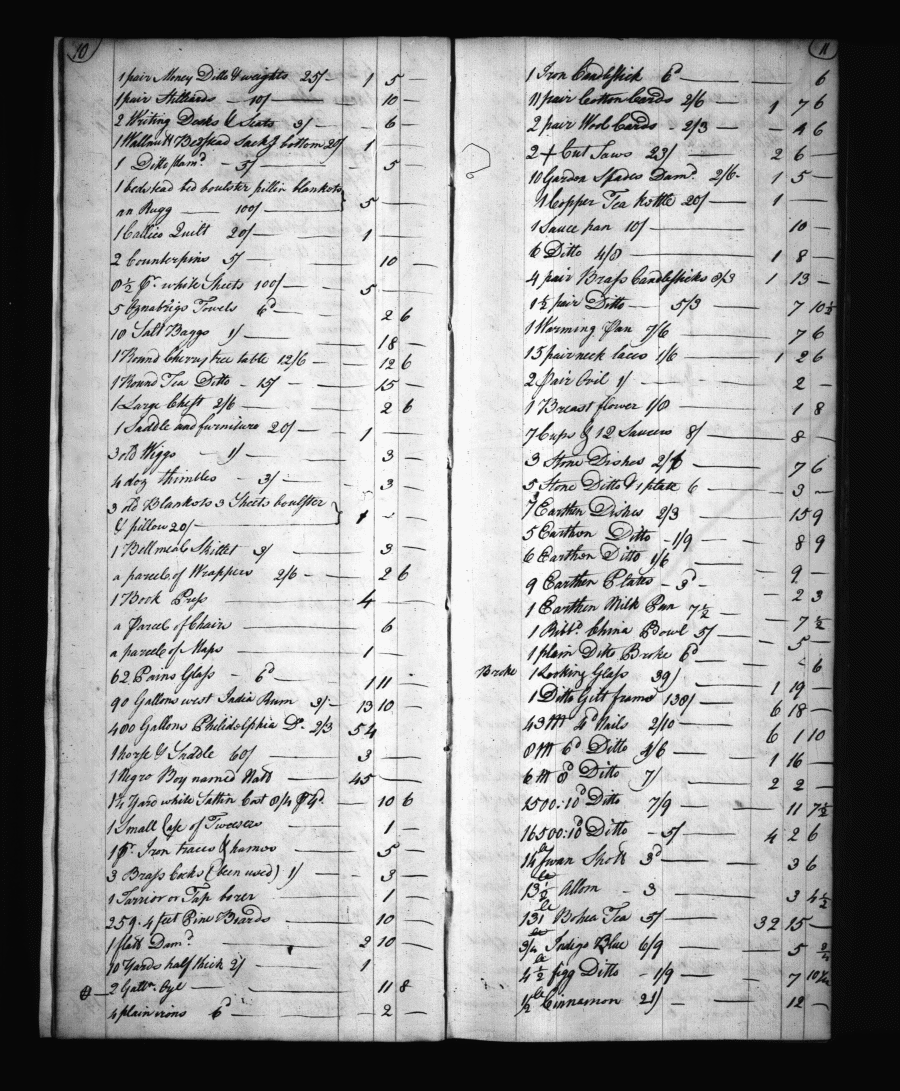 10
1 pair Money Ditto & weights 25/ — 1 5 —
1 pair Stilliards — 10/ — 10 —
2 Writing Desks & Seats 3/ — 6 —
1 Wallnutt Bedstead Sack bottom 20/ 1 —
1 Ditto Damd. — 5/ — 5
1 bedstead bed boulster pillin blankets
an Rugg — 100/ — 5 —
1 Callico Quilt 20/ — 1 —
2 Counterpins 5/ — 10 —
8½ pr. white Sheets 100/ — 5 —
5 Oznabrigs Towels 6d — 2 6
10 Salt Baggs 1/ — 18 —
1 Round Cherry tree table 12/6 — 12 6
1 Round Tea Ditto — 15/ — 15 —
1 Large Chest 2/6 — 2 6
1 Saddle and furniture 20/ — 1 —
3 old Wiggs — 1/ — 3 —
4 doz thimbles — 3/ — 3 —
3 old Blankets 3 Sheets boulster
& pillow 20/ — 1 - -
1 Bellmeal Skillet 3/ — 3 —
a parcel of Wrappers 2/6 — 2 6
1 Book Press — 4 —
a Parcel of Chain — 6
a parcel of Maps — 1 —
62 Pains Glass — 6d — 1 11 -
90 Gallons west India Rum 3/ — 13 10 —
400 Gallons Philidelphia Do. 2/3 54
1 horse & Saddle 60/ — 3 —
1 Negro Boy named Natt — 45 —
1¼ Yard white Sattin Cost 8/4 — 10 6
1 Small Case of Tweesers — 1 —
1 pr. Iron traces & hames — 5 —
3 Brass Cocks (been used) 1/ — 3 —
1 Tarrior or Tap borer — 1
259. 4 feet Pine Boards — 10 —
1 flatt Damd. — 2 10 —
10 Yards half thick 2/ — 1
2 Galln. Oyl — 11 8
4 plain irons 6d — 2 —
11
1 Iron Candlestick 6d — 6
11 pair Cotton Cards 2/6 — 1 7 6
2 pair Wool Cards — 2/3 — 4 6
2 + Cut Saws 23/ — 2 6 —
10 Garden Spades Damd. 2/6 - 1 5 —
1 Copper Tea kettle 20/ — 1 —
1 Sauce pan 10/ — 10 —
6 Ditto 4/8 — 1 8 —
4 pair Brass Candlesticks 8/3 1 13 —
1½ pair Ditto — 5/3 — 7 10½
1 Warming Pan 7/6 — 7 6
15 pair neck laces 1/6 — 1 2 6
2 Pair Ovil 1/ — 2 —
1 Breast flower 1/8 — 1 8
7 Cups & 12 Saucers 8/ — 8 —
3 Stone Dishes 2/6 — 7 6
5 Stone Ditto & 1 plate 6 — 3 —
7 Earthen Dishes 2/3 — 15 9
5 Earthen Ditto — 1/9 — 8 9
6 Earthen Ditto 1/6 — 9 —
9 Earthen Plates — 3d — 2 3
1 Earthen Milk Pan 7½ — 7½
1 Ribbd. China Bowl 5/ — 5 —
1 plain Ditto Broke 6d — 6
Broke 1 Looking Glass 39/ — 1 19 —
1 Ditto Gilt frame 138/ — 6 18 —
43 M 4d Nails 2/10 — 6 1 10
8 M 6d Ditto 4/6 — 1 16 —
6 M 8d Ditto 7/ — 2 2 —
1500: 10d Ditto 7/9 — 11 7½
16500: 10d Ditto — 5/ — 4 2 6
14 lb Swan Shott 3d — 3 6
13½ lb Allom — 3 — 3 4½
131 lb Bohea Tea 5/ — 32 15 —
¾ lb Indigo Blue 6/9 — 5
4½ lb figg Ditto — 1/9 — 7 10½
½ lb Cinnemon 21/ — 12 —